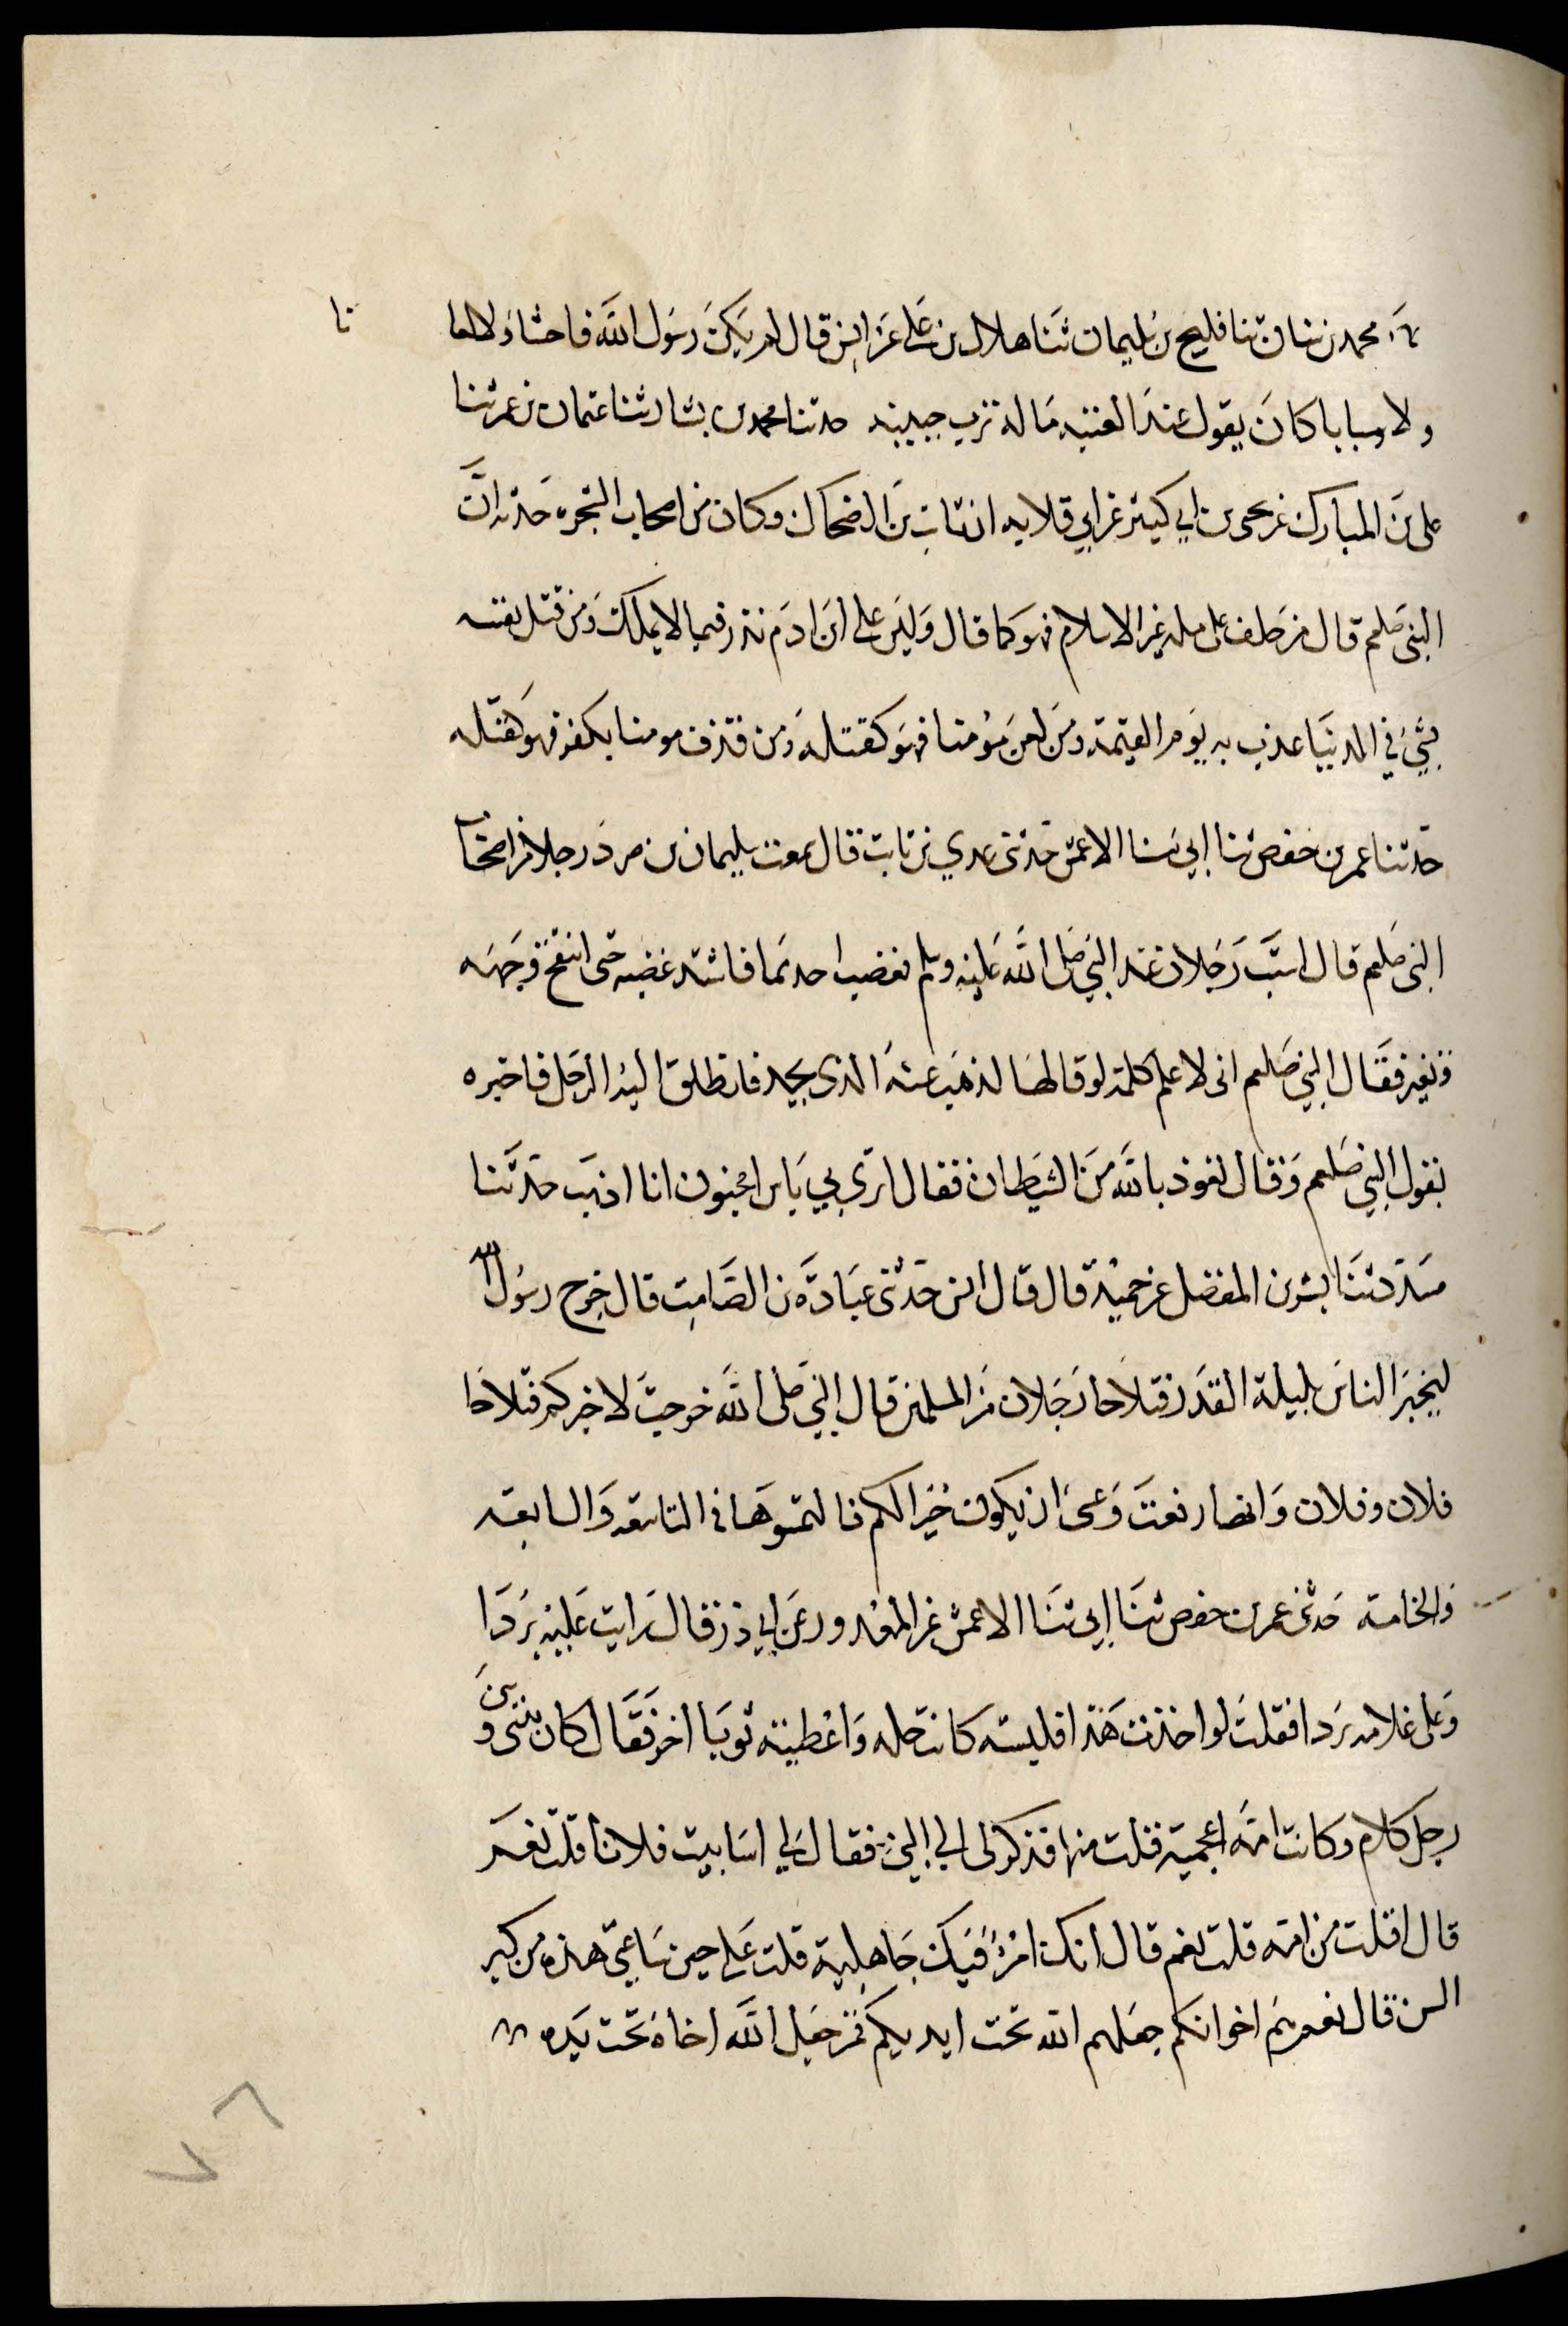 نا
محمد بن سنان ثنا فليح بن سليمان ثنا هلال بن علي عن انس قال لم يكن رسول الله فاحشا ولا لعانا
ولا سبابا كان يقول عند المعتبه ماله ترب جبينه حدثنا محمد بن بشار ثنا عثمان بن عمر ثنا
على بن المبارك عن يحيى بن ابي كثير عن ابي قلابه ان ثابت بن الضحاك وكان من اصحاب الشجره حدثه ان
النبى صلعم قال من حلف على مله غير الاسلام فهو كما قال وليس على ابن ادم نذر فيما لا يملك ومن قتل نفسه
بشئ في الدنيا عذب به يوم القيمة ومن لعن مؤمنا فهو كقتله ومن قذف مومنا بكفر فهو كقتله
حدثنا عمر بن حفص ثنا ابي ثنا الاعمش حدثنى عدي بن ثابت قال سمعت سليمان بن صرد رجلا من اصحاب
النبى صلعم قال استب رجلان عند النبي صلى الله عليه وسلم فغضب احدهما فاشتد غضبه حتى انتفخ وجهه
وتغير فقال النبي صلعم انى لاعلم كلمة لو قالها لذهب عنه الذى يجد فانطلق اليه الرجل فاخبره
بقول النبي صلعم وقال تعوذ بالله من الشيطان فقال اترى بي باس امجنون انا اذهب حدثنا
مسدد ثنا بشر بن المفضل عن حميد قال قال انس حدثنى عبادة بن الصامت قال خرج رسول الله
ليخبر الناس بليلة القدر فتلاحا رجلان من المسلمين قال النبي صلى الله خرجت لاخبركم فتلاحا
فلان وفلان وانها رفعت وعسى ان يكون خيرا لكم فالتمسوها في التاسعه والسابعه
والخامسه حدثنى عمر بن حفص ثنا ابي ثنا الاعمش عن المعرور عن ابي ذر قال رايت عليه بردا
وعلى غلامه بردا فقلت لو اخذت هذا فلبسته كانت حله واعطيته ثوبا اخر فقال كان بينى وبين
رجل كلام وكانت امه اعجمية فنلت منها فذكرنى الى النبي فقال لي اساببت فلانا قلت نعم
قال افنلت من امه قلت نعم قال انك امرؤ فيك جاهلية قلت على حين ساعتى هذه من كبر
السن قال نعم هم اخوانكم جعلهم الله تحت ايديكم فمن جعل الله اخاه تحت يده